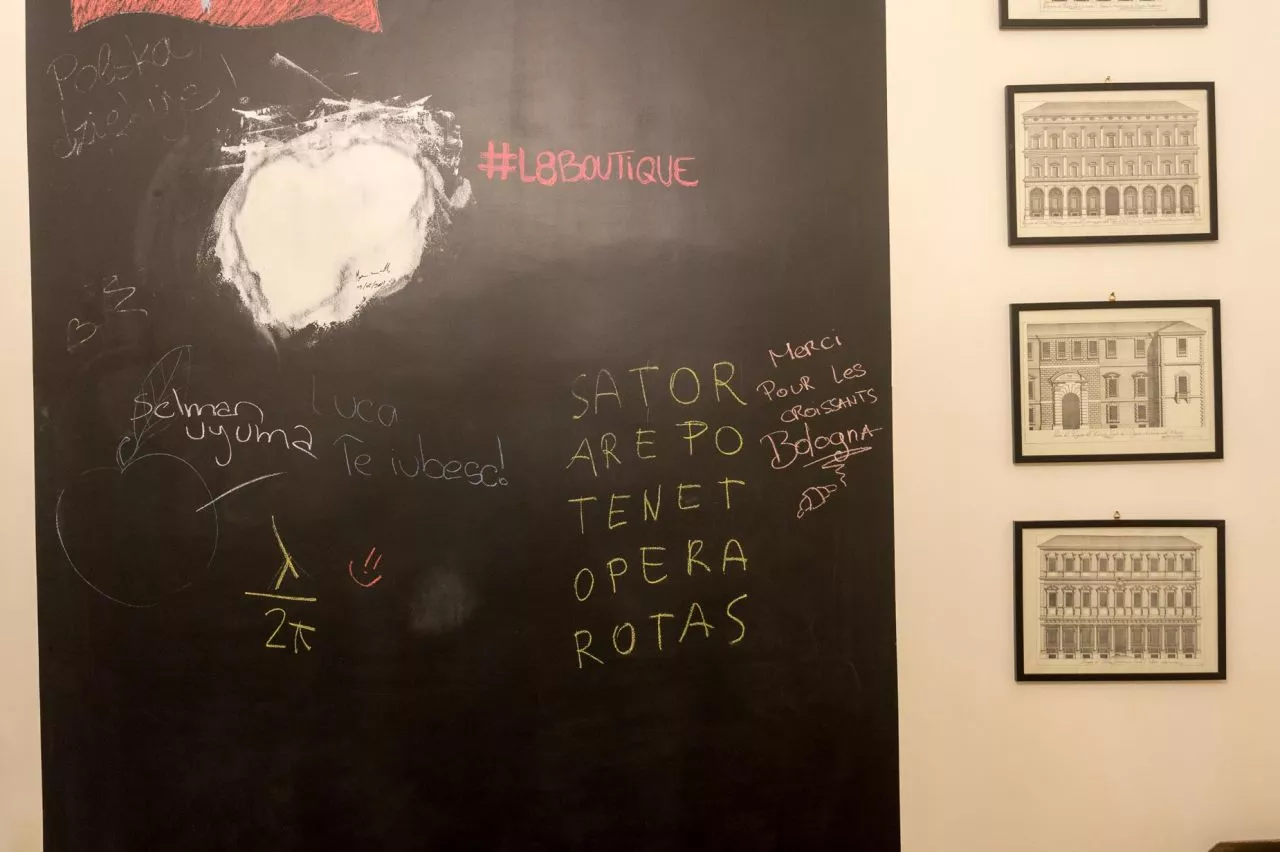 Polska
#L8BOUTIQUE
Selman
uyuma
Luca
Te iubesc!
λ
2π
SATOR
AREPO
TENET
OPERA
ROTAS
MERCI
POUR LES
CROISSANTS
Bologna